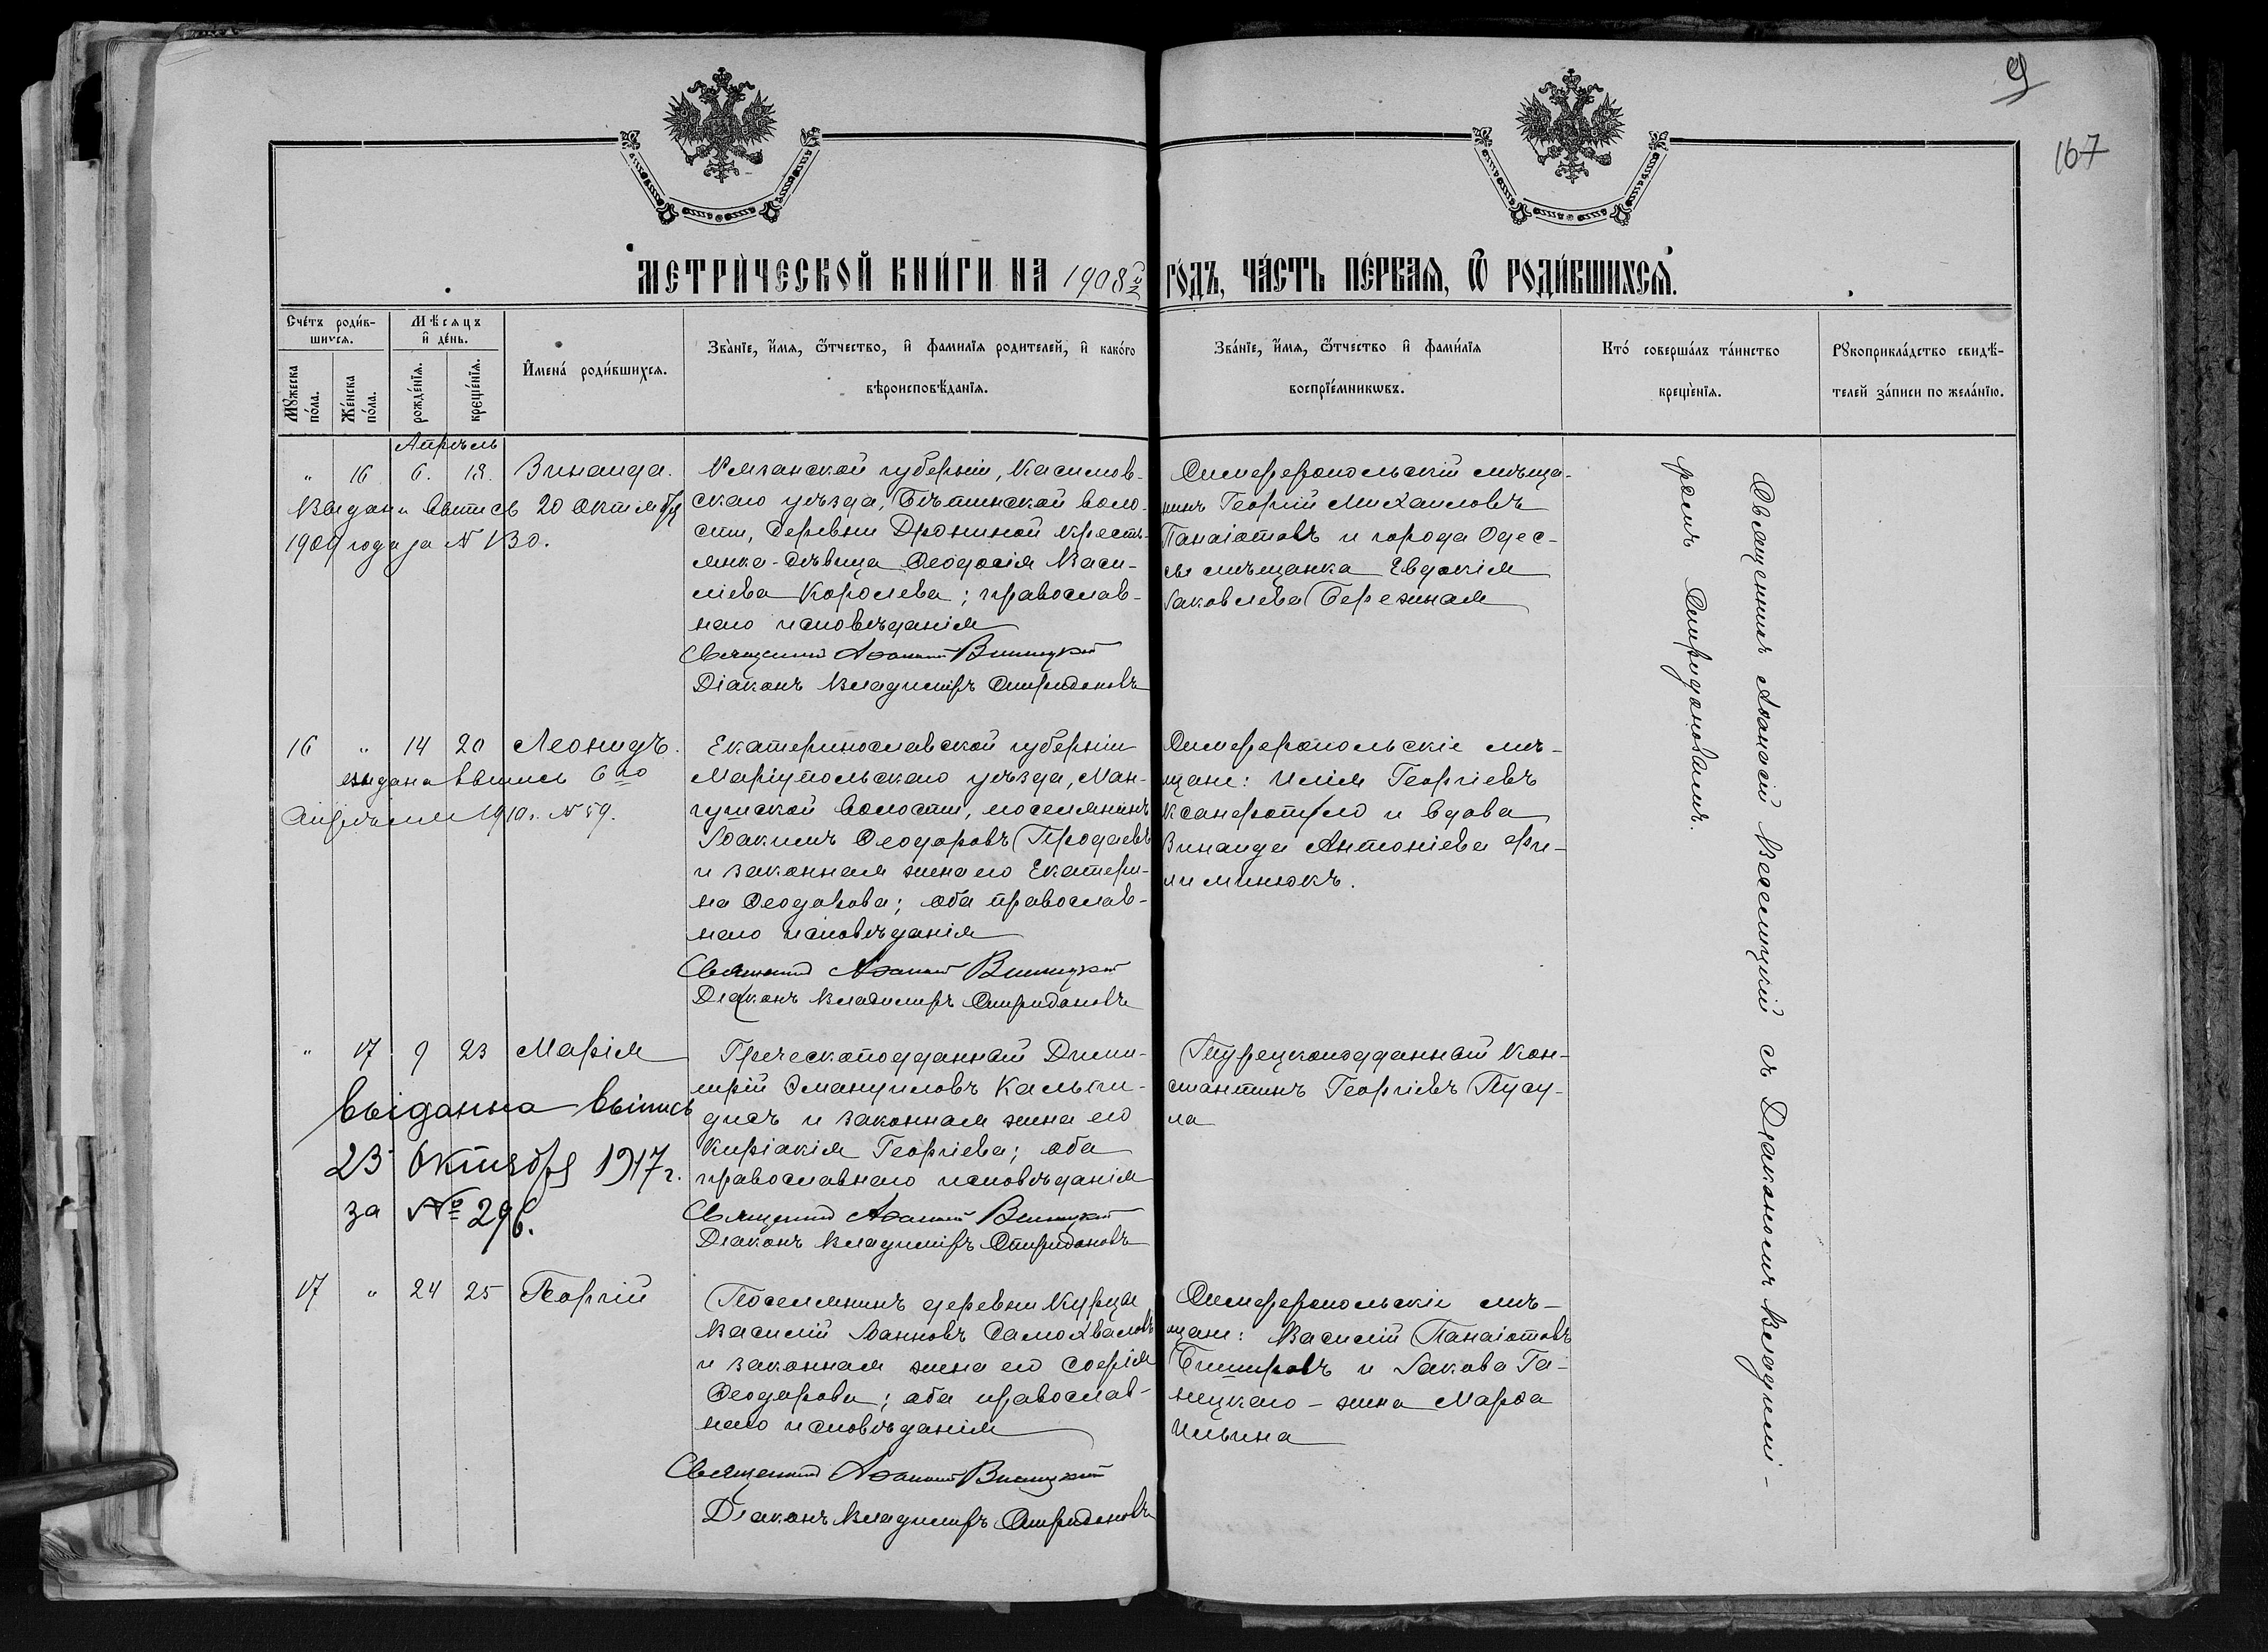 9
167
МЕТРИ́ЧЕСКОЙ КНИ́ГИ НА 1908й ГО́ДЪ, ЧА́СТЬ ПЕ́РВАЯ, Ѿ РОДИ́ВШИХСЯ.
Сче́тъ роди́в-
шихся.
Мѣсяцъ
и де́нь.
Мꙋжеска
по́ла.
Же́нска
по́ла.
рожде́нїя.
креще́нїя.
Имена́ роди́вшихся.
Зва́нїе, и́мя, ѻ́тчество, и фами́лїя роди́телей, и како́го
вѣроисповѣ́данїя.
Зва́нїе, и́мя, ѻ́тчество и фами́лїя
воспрїе́мникѡвъ.
Кто́ соверша́лъ та́инство
креще́нїя.
Рꙋкоприкла́дство свидѣ́-
телей за́писи по жела́нїю.
Апрѣль
" 16 6. 13. Зинаида.
Выдана выпись 20 Октября
1909 года за N 130.
Рязанской губерніи, Касимов-
скаго уѣзда, Бѣтинской воло-
сти, деревни Дрониной кресть-
янка-дѣвица Ѳеодосія Васи-
ліева Королева; православ-
наго исповѣданія
Священникъ Аѳанасій
Діаконъ Владиміръ Спиридоновъ
Симферопольскій мѣща-
нинъ Георгій Михаиловъ
Панаіотовъ и города Одес-
сы мѣщанка Евдокія
Іаковлева Бережная
Священникъ Аѳанасій съ Діакономъ Владимі-
ромъ Спиридоновымъ.
16 " 14 20 Леонидъ.
выдана выпись 6го
Апрѣля 1910г. N 59.
Екатеринославской губерніи
Маріупольскаго уѣзда, Ман-
гушской волости, поселянинъ
Іоакимъ Ѳеодоровъ Продаевъ
и законная жена его Екатери-
на Ѳеодорова; оба православ-
наго исповѣданія
Священникъ Аѳанасій
Діаконъ Владиміръ Спиридоновъ
Симферопольскіе мѣ-
щане: Илія Георгіевъ
Ксанфопуло и вдова
Зинаида Антоніева Фи-
лиминюкъ.
" 17 9 23 Марія
выданна выпись
23 Октября 1917г.
за № 296.
Греческоподданный Дими-
трій Эмануиловъ Кальти-
дисъ и законная жена его
Киріакія Георгіева; оба
православнаго исповѣданія
Священникъ Аѳанасій
Діаконъ Владиміръ Спиридоновъ
Турецкоподданный Кон-
стантинъ Георгіевъ Пусу-
ла
17 " 24 25 Георгій
Поселянинъ деревни Курцы
Василій Іоанновъ Самохваловъ
и законная жена его Софія
Ѳеодорова; оба православ-
наго исповѣданія
Священникъ Аѳанасій
Діаконъ Владиміръ Спиридоновъ
Симферопольскіе мѣ-
щане: Василій Панаіотовъ
и Іакова Га-
нецкаго - жена Марѳа
Ильина